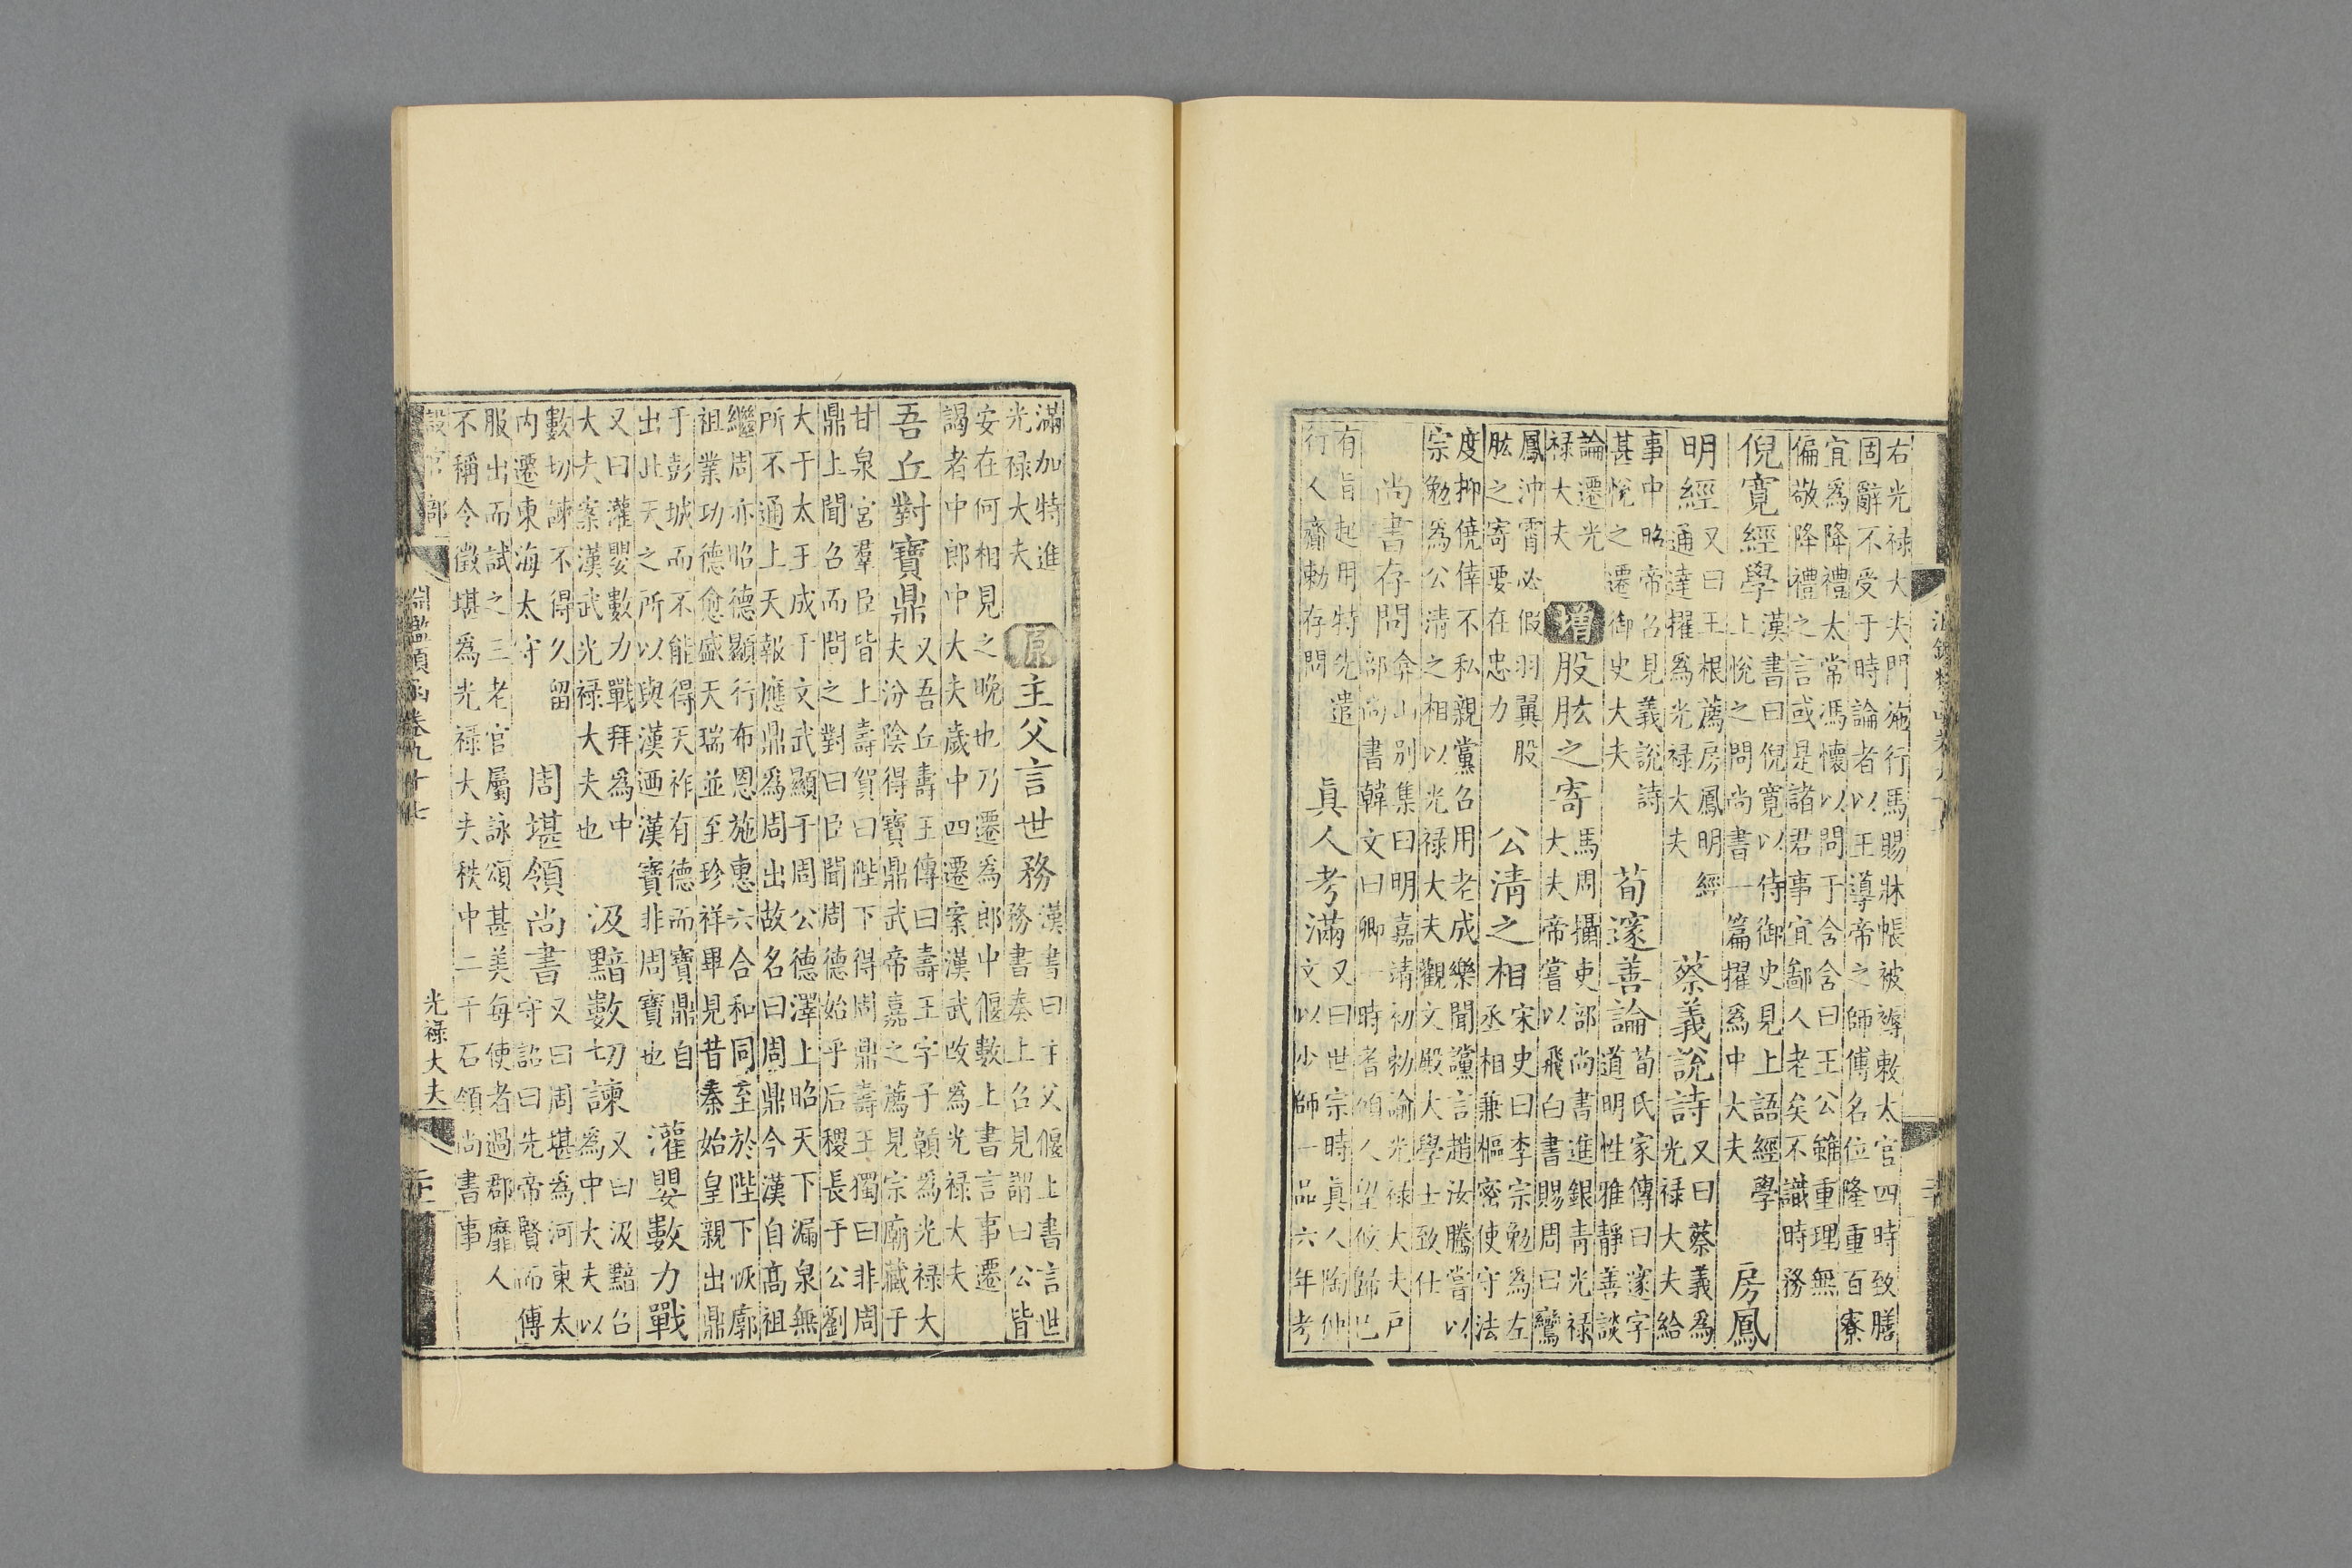 右光禄大夫門施行馬賜牀帳被褥敕太官四時致膳
固辭不受于時論者以王導帝之師傅名位隆重百寮
宜爲降禮太常馮懷以問于含含曰王公雖重理無
偏敬降禮之言或是諸君事宜鄙人老矣不識時務
倪寛經學
漢書曰倪寛以侍御史見上語經學
上悅之問尚書一篇擢爲中大夫
房鳳
明經
又曰王根薦房鳳明經
通達擢爲光禄大夫
蔡義說詩
又曰蔡義爲
光禄大夫給
事中昭帝召見義說詩
甚悅之遷御史大夫
荀邃善論
荀氏家傳曰邃字
道明性雅靜善談
論遷光
禄大夫
增
股肱之寄
馬周攝吏部尚書進銀青光禄
大夫帝嘗以飛白書賜周曰鸞
鳳沖霄必假羽翼股
肱之寄要在忠力
公清之相
宋史曰李宗勉爲左
丞相兼樞密使守法
度抑僥倖不私親黨召用老成樂聞讜言趙汝騰嘗以
宗勉爲公清之相以光禄大夫觀文殿大學士致仕
尚書存問
弇山別集曰明嘉靖初勅諭光禄大夫戶
部尚書韓文曰卿一時耆碩人望攸歸已
有旨起用特先遣
行人齎勅存問
眞人考滿
又曰世宗時眞人陶仲
文以少師一品六年考
滿加特進
光禄大夫
原
主父言世務
漢書曰主父偃上書言世
務書奏上召見謂曰公皆
安在何相見之晚也乃遷爲郎中偃數上書言事遷
謁者中郎中大夫歲中四遷案漢武改爲光禄大夫
吾丘對寶鼎
又吾丘壽王傳曰壽王字子贛爲光禄大
夫汾陰得寶鼎武帝嘉之薦見宗廟藏于
甘泉宮羣臣皆上壽賀曰陛下得周鼎壽王獨曰非周
鼎上聞召而問之對曰臣聞周德始乎后稷長于公劉
大于太王成于文武顯于周公德澤上昭天下漏泉無
所不通上天報應鼎爲周出故名曰周鼎今漢自髙祖
繼周亦昭德顯行布恩施惠六合和同至於陛下恢廓
祖業功德愈盛天瑞並至珍祥畢見昔秦始皇親出鼎
于彭城而不能得天祚有德而寶鼎自
出此天之所以與漢廼漢寶非周寶也
灌嬰數力戰
又曰灌嬰數力戰拜爲中
大夫案漢武光禄大夫也
汲黯數切諫
又曰汲黯召
爲中大夫以
數切諫不得久留
内遷東海太守
周堪領尚書
又曰周堪爲河東太
守詔曰先帝賢而傅
服出而試之三老官屬詠頌甚美每使者過郡靡人
不稱令徵堪爲光禄大夫秩中二千石領尚書事
設官部
淵鑑類函卷九十七
光禄大夫